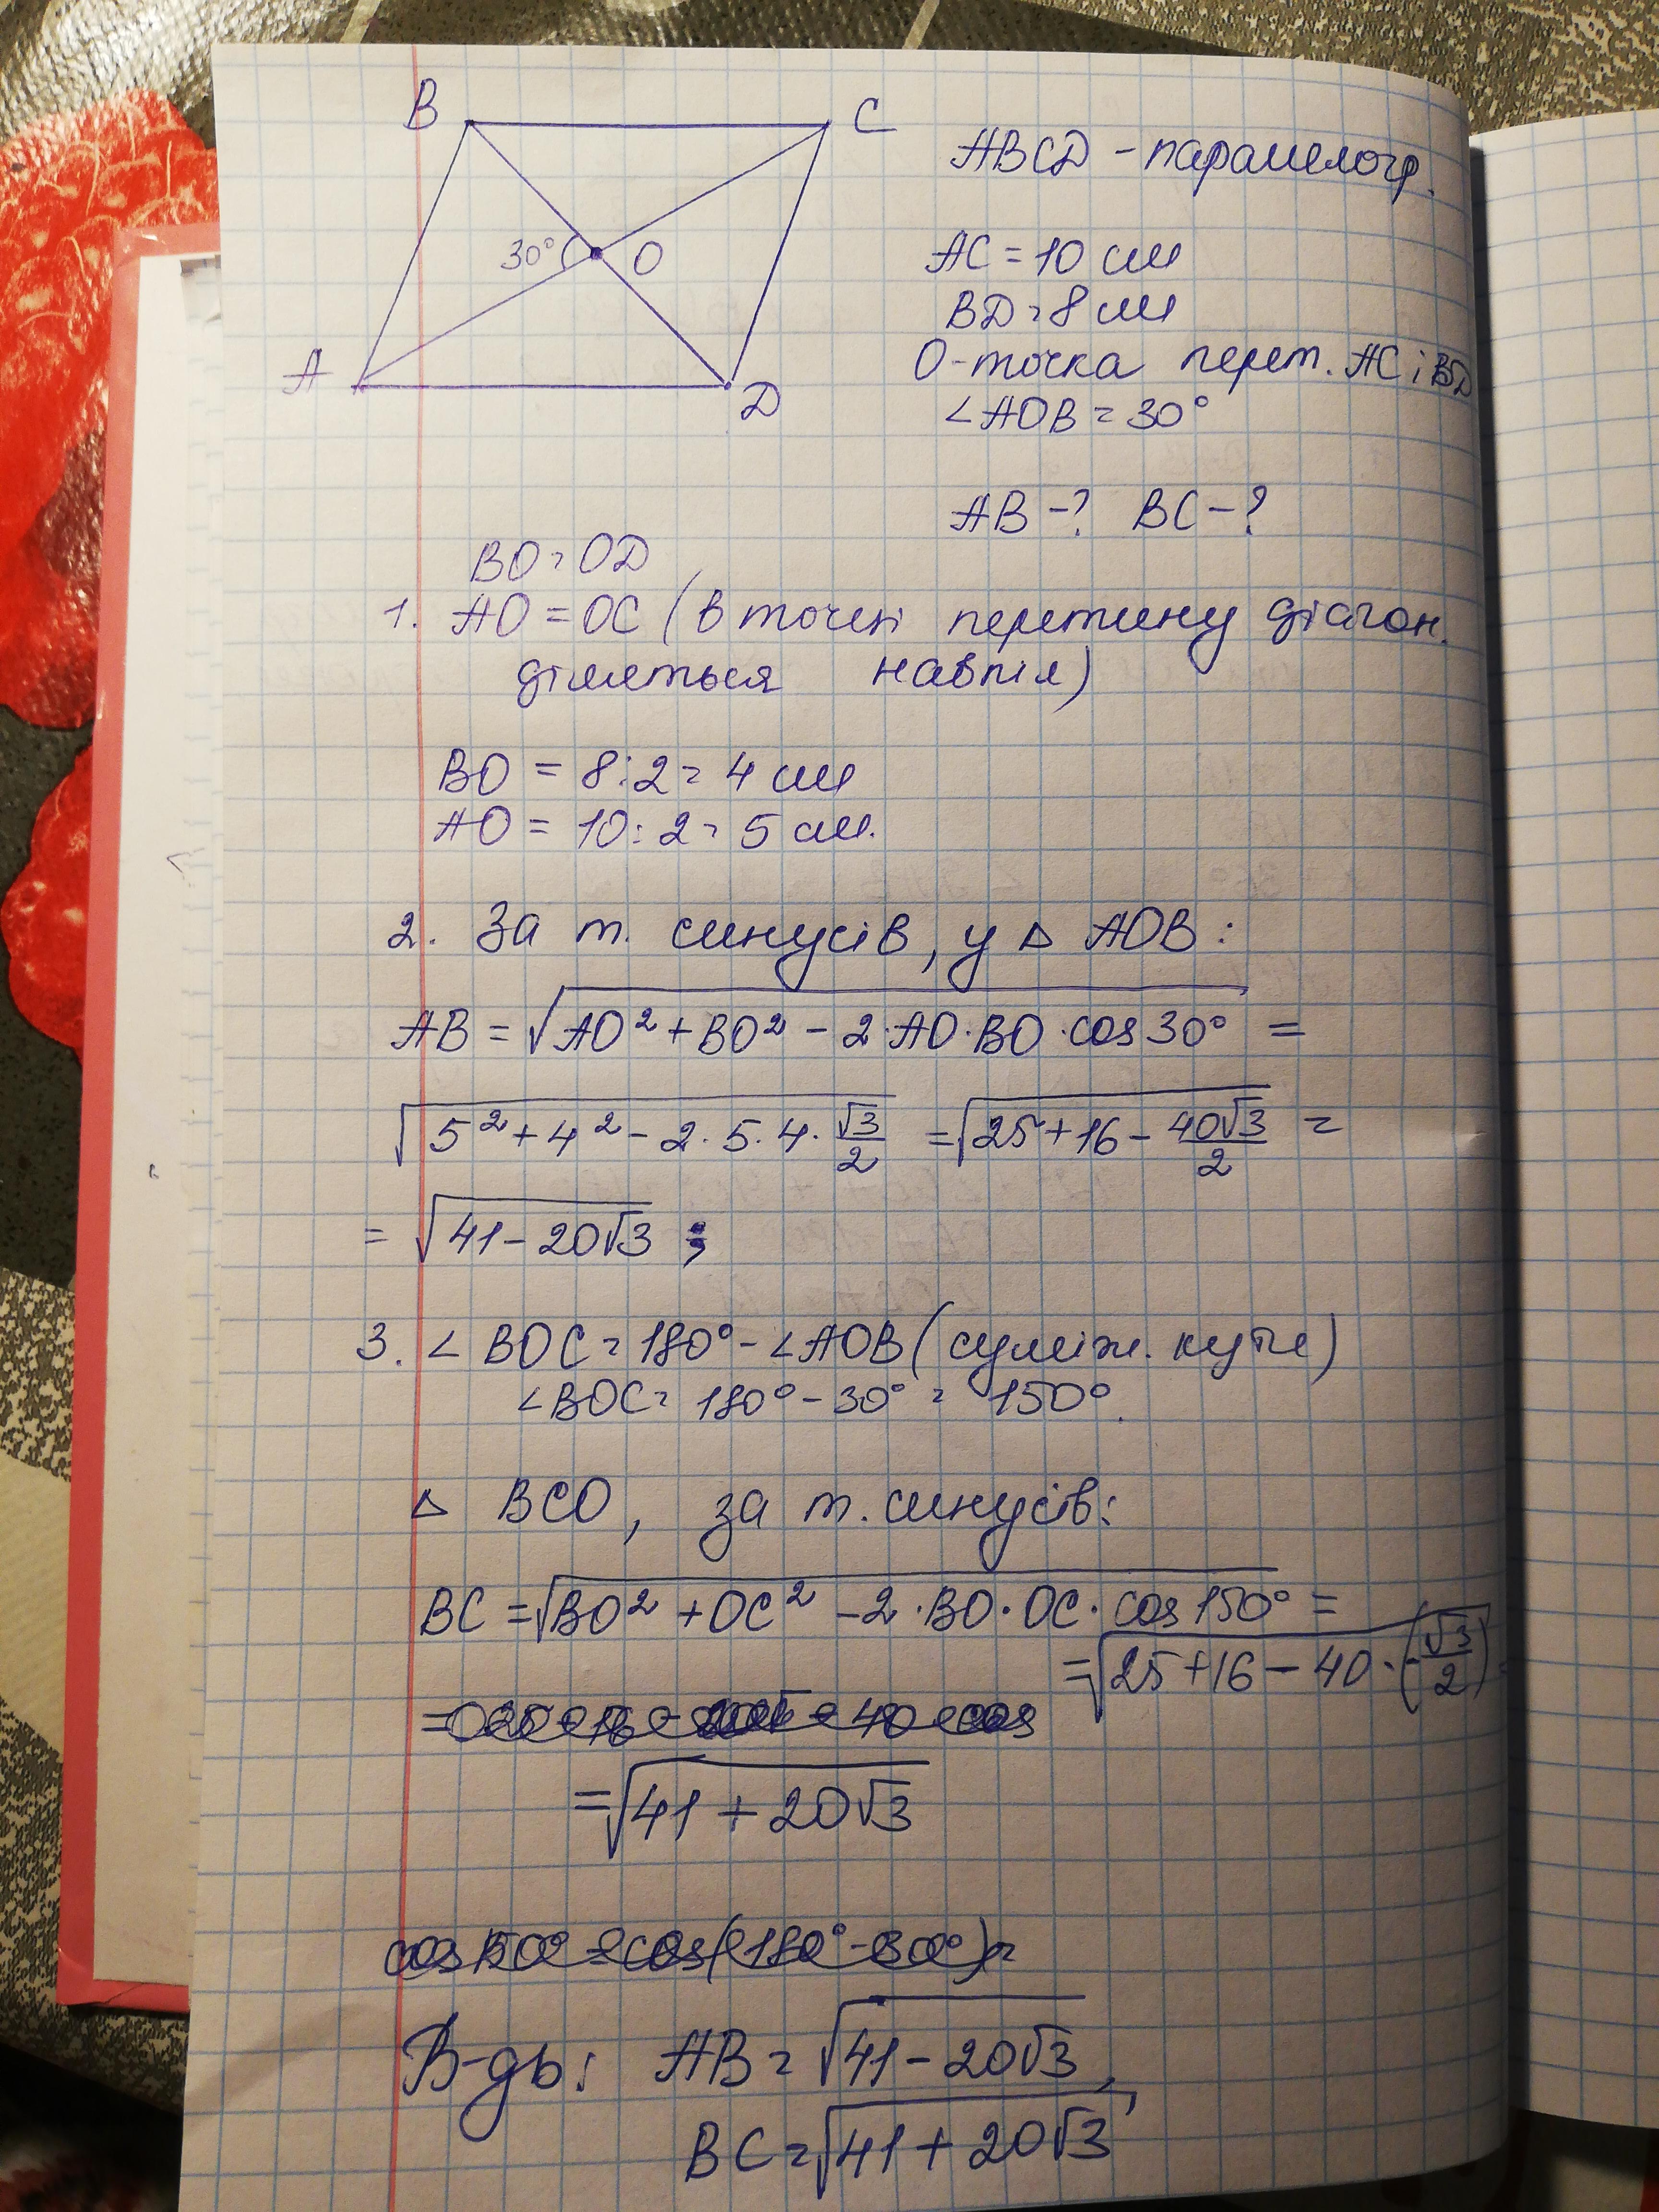 B
C
ABCD - паралелогр.
30°
O
AC = 10 см
BD = 8 см
A
D
O - точка перет. AC і BD
∠AOB = 30°
AB - ? BC - ?
BO = OD
1. AO = OC (в точці перетину діагон.
діляться навпіл)
BO = 8 : 2 = 4 см
AO = 10 : 2 = 5 см.
2. За т. синусів, у △ AOB :
AB = √(AO² + BO² - 2·AO·BO·cos 30°) =
√(5² + 4² - 2·5·4·√3/2) = √(25 + 16 - 40√3/2) =
= √(41 - 20√3) ;
3. ∠ BOC = 180° - ∠AOB (суміж. кути)
∠BOC = 180° - 30° = 150°.
△ BCO, за т. синусів:
BC = √(BO² + OC² - 2·BO·OC·cos 150°) =
= √(25 + 16 - 40·(-√3/2)) =
= √(41 + 20√3)
cos 150° = cos(180° - 30°) =
В-дь: AB = √(41 - 20√3),
BC = √(41 + 20√3)